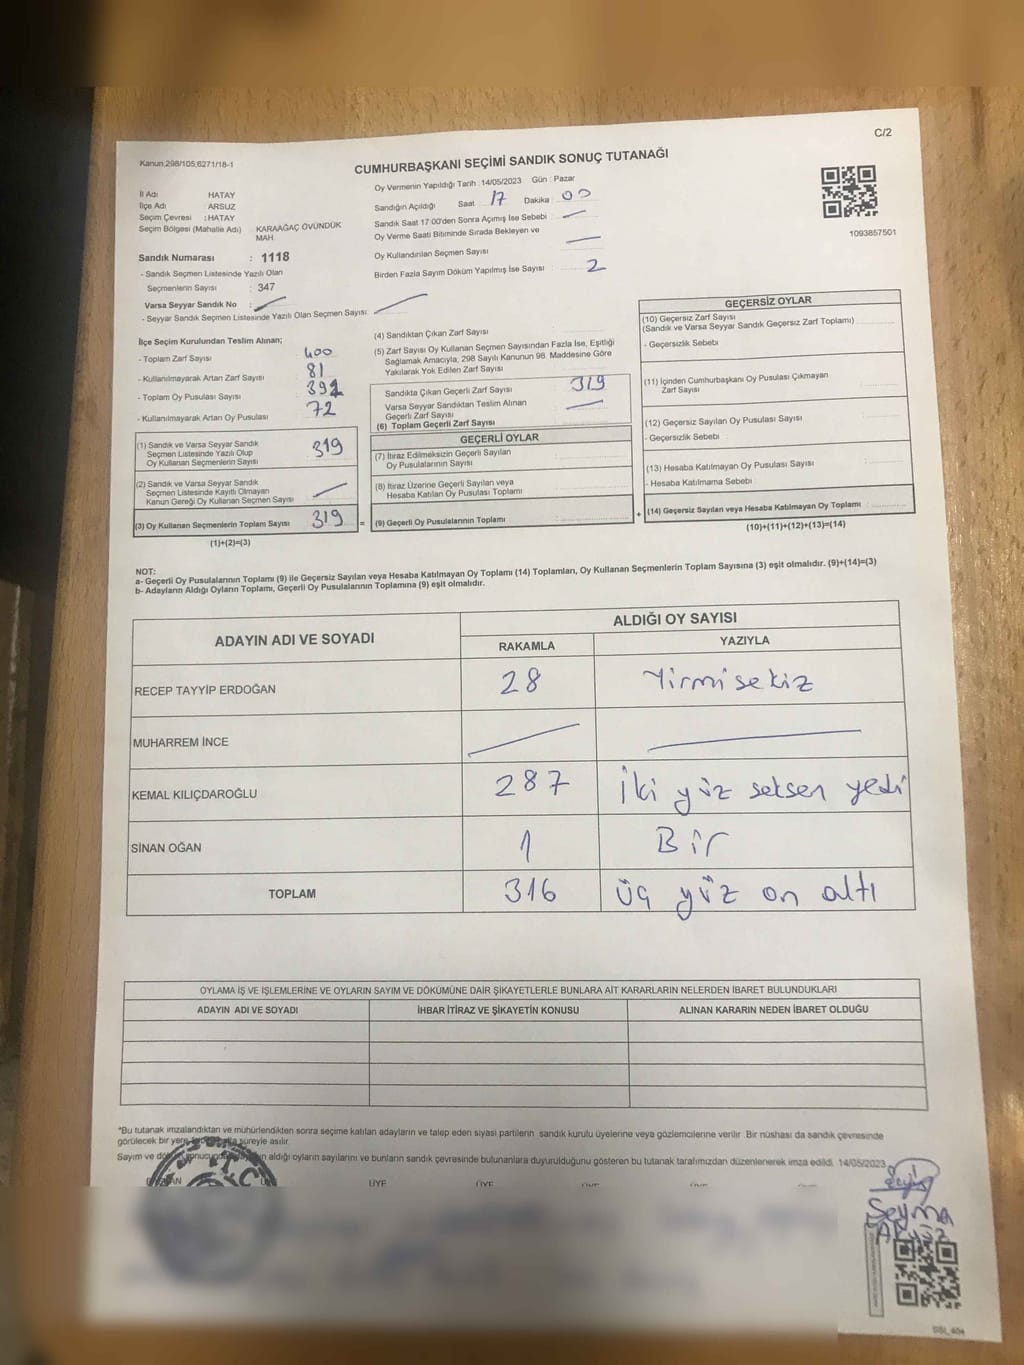 C/2
Kanun:298/105,6271/18-1
CUMHURBAŞKANI SEÇİMİ SANDIK SONUÇ TUTANAĞI
İl Adı HATAY
İlçe Adı ARSUZ
Seçim Çevresi :HATAY
Seçim Bölgesi (Mahalle Adı) KARAAĞAÇ ÖVÜNDÜK MAH.
Sandık Numarası : 1118
- Sandık Seçmen Listesinde Yazılı Olan
Seçmenlerin Sayısı : 347
Varsa Seyyar Sandık No :
- Seyyar Sandık Seçmen Listesinde Yazılı Olan Seçmen Sayısı
Oy Vermenin Yapıldığı Tarih : 14/05/2023 Gün : Pazar
Sandığın Açıldığı Saat 17 Dakika 00
Sandık Saat 17:00'den Sonra Açımış İse Sebebi
Oy Verme Saati Bitiminde Sırada Bekleyen ve
Oy Kullandırılan Seçmen Sayısı
Birden Fazla Sayım Döküm Yapılmış İse Sayısı 2
1093857501
İlçe Seçim Kurulundan Teslim Alınan;
- Toplam Zarf Sayısı 400
- Kullanılmayarak Artan Zarf Sayısı 81
- Toplam Oy Pusulası Sayısı 391
- Kullanılmayarak Artan Oy Pusulası 72
(1) Sandık ve Varsa Seyyar Sandık
Seçmen Listesinde Yazılı Olup
Oy Kullanan Seçmenlerin Sayısı 319
(2) Sandık ve Varsa Seyyar Sandık
Seçmen Listesinde Kayıtlı Olmayan
Kanun Gereği Oy Kullanan Seçmen Sayısı
(3) Oy Kullanan Seçmenlerin Toplam Sayısı 319 =
(1)+(2)=(3)
(4) Sandıktan Çıkan Zarf Sayısı
(5) Zarf Sayısı Oy Kullanan Seçmen Sayısından Fazla İse, Eşitliği
Sağlamak Amacıyla; 298 Sayılı Kanunun 98. Maddesine Göre
Yakılarak Yok Edilen Zarf Sayısı
Sandıkta Çıkan Geçerli Zarf Sayısı 319
Varsa Seyyar Sandıktan Teslim Alınan
Geçerli Zarf Sayısı
(6) Toplam Geçerli Zarf Sayısı
GEÇERLİ OYLAR
(7) İtiraz Edilmeksizin Geçerli Sayılan
Oy Pusulalarının Sayısı
(8) İtiraz Üzerine Geçerli Sayılan veya
Hesaba Katılan Oy Pusulası Toplamı
(9) Geçerli Oy Pusulalarının Toplamı +
GEÇERSİZ OYLAR
(10) Geçersiz Zarf Sayısı
(Sandık ve Varsa Seyyar Sandık Geçersiz Zarf Toplamı)
- Geçersizlik Sebebi
(11) İçinden Cumhurbaşkanı Oy Pusulası Çıkmayan
Zarf Sayısı
(12) Geçersiz Sayılan Oy Pusulası Sayısı
- Geçersizlik Sebebi
(13) Hesaba Katılmayan Oy Pusulası Sayısı
- Hesaba Katılmama Sebebi
(14) Geçersiz Sayılan veya Hesaba Katılmayan Oy Toplamı
(10)+(11)+(12)+(13)=(14)
NOT:
a- Geçerli Oy Pusulalarının Toplamı (9) ile Geçersiz Sayılan veya Hesaba Katılmayan Oy Toplamı (14) Toplamları, Oy Kullanan Seçmenlerin Toplam Sayısına (3) eşit olmalıdır. (9)+(14)=(3)
b- Adayların Aldığı Oyların Toplamı, Geçerli Oy Pusulalarının Toplamına (9) eşit olmalıdır.
ADAYIN ADI VE SOYADI ALDIĞI OY SAYISI
RAKAMLA YAZIYLA
RECEP TAYYİP ERDOĞAN 28 Yirmisekiz
MUHARREM İNCE
KEMAL KILIÇDAROĞLU 287 İki yüz seksen yedi
SİNAN OĞAN 1 Bir
TOPLAM 316 üç yüz on altı
OYLAMA İŞ VE İŞLEMLERİNE VE OYLARIN SAYIM VE DÖKÜMÜNE DAİR ŞİKAYETLERLE BUNLARA AİT KARARLARIN NELERDEN İBARET BULUNDUKLARI
ADAYIN ADI VE SOYADI İHBAR İTİRAZ VE ŞİKAYETİN KONUSU ALINAN KARARIN NEDEN İBARET OLDUĞU
*Bu tutanak imzalandıktan ve mühürlendikten sonra seçime katılan adayların ve talep eden siyasi partilerin sandık kurulu üyelerine veya gözlemcilerine verilir. Bir nüshası da sandık çevresinde
görülecek bir yere süreyle asılır.
Sayım ve aldığı oyların sayılarını ve bunların sandık çevresinde bulunanlara duyurulduğunu gösteren bu tutanak tarafımızdan düzenlenerek imza edildi. 14/05/2023
T.C.
ÜYE ÜYE ÜYE ÜYE
Şeyma